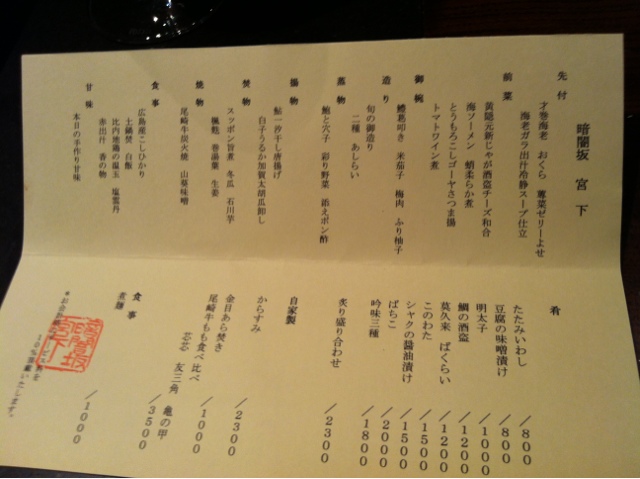 暗闇坂 宮下
先付
才巻海老 おくら 蓴菜ゼリーよせ
海老ガラ出汁冷静スープ仕立
前菜
黄韮元新じゃが酒盗チーズ和合
海ソーメン 蛸柔らか煮
とうもろこしゴーヤさつま揚
トマトワイン煮
御椀
鱧葛叩き 米茄子 梅肉 ふり柚子
造り
旬の御造り
二種 あしらい
蒸物
鮑と穴子 彩り野菜 添えポン酢
揚物
鮎一汐干し唐揚げ
白子うるか加賀太胡瓜卸し
焚物
スッポン旨煮 冬瓜 石川芋
楓麩 巻湯葉 生姜
焼物
尾崎牛炭火焼 山葵味噌
食事
広島産こしひかり
土鍋焚 白飯
比内地鶏の温玉 塩雲丹
赤出汁 香の物
甘味
本日の手作り甘味
肴
たたみいわし /800
豆腐の味噌漬け /800
明太子 /1000
鯛の酒盗 /1200
莫久来 ばくらい /1200
このわた /1500
シャクの醤油漬け /1500
ばちこ /2000
吟味三種 /1800
炙り盛り合わせ /2300
自家製
からすみ /2300
金目あら焚き
尾崎牛もも食べ比べ /1000
芯芯 友三角 亀の甲 /3500
食事
煮麺 /1000
*お会計
10%頂戴いたします。
暗闇坂宮下